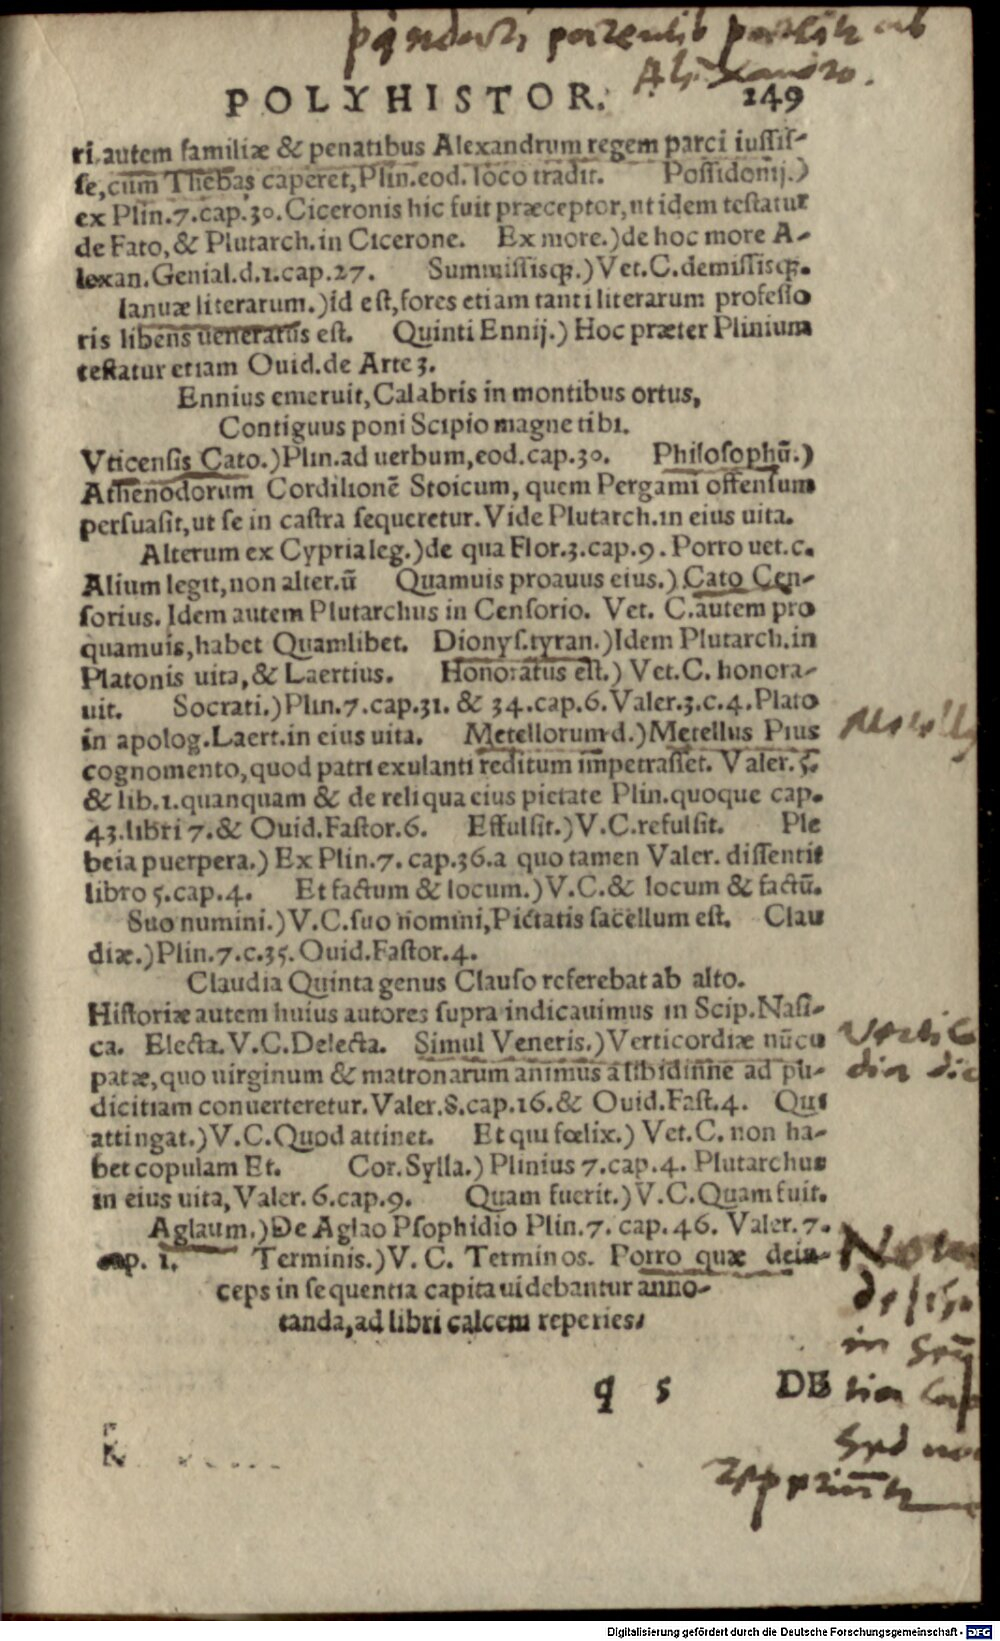 POLYHISTOR. 149
ri autem familiæ & penatibus Alexandrum regem parci iussis-
se, cum Thebas caperet, Plin. eod. loco tradit. Possidonij.)
ex Plin. 7. cap. 30. Ciceronis hic fuit præceptor, ut idem testatur
de Fato, & Plutarch. in Cicerone. Ex more.) de hoc more A-
lexan. Genial. d. 1. cap. 27. Summissisq́;.) Vet. C. demissisq́;.
Ianuæ literarum.) id est, fores etiam tanti literarum professo
ris libens ueneratus est. Quinti Ennij.) Hoc præter Plinium
testatur etiam Ouid. de Arte 3.
Ennius emeruit, Calabris in montibus ortus,
Contiguus poni Scipio magne tibi.
Vticensis Cato.) Plin. ad uerbum, eod. cap. 30. Philosophū.)
Athenodorum Cordilionē Stoicum, quem Pergami offensum
persuasit, ut se in castra sequeretur. Vide Plutarch. in eius uita.
Alterum ex Cypria leg.) de qua Flor. 3. cap. 9. Porro uet. c.
Alium legit, non alter. ū Quamuis proauus eius.) Cato Cen-
sorius. Idem autem Plutarchus in Censorio. Vet. C. autem pro
quamuis, habet Quamlibet. Dionys. tyran.) Idem Plutarch. in
Platonis uita, & Laertius. Honoratus est.) Vet. C. honora-
uit. Socrati.) Plin. 7. cap. 31. & 34. cap. 6. Valer. 3. c. 4. Plato
in apolog. Laert. in eius uita. Metellorum d.) Metellus Pius
cognomento, quod patri exulanti reditum impetrasset. Valer. 5.
& lib. 1. quanquam & de reliqua eius pietate Plin. quoque cap.
43. libri 7. & Ouid. Fastor. 6. Effulsit.) V. C. refulsit. Ple
beia puerpera.) Ex Plin. 7. cap. 36. a quo tamen Valer. dissentit
libro 5. cap. 4. Et factum & locum.) V. C. & locum & factū.
Suo numini.) V. C. suo nomini, Pietatis sacellum est. Clau
diæ.) Plin. 7. c. 35. Ouid. Fastor. 4.
Claudia Quinta genus Clauso referebat ab alto.
Historiæ autem huius autores supra indicauimus in Scip. Nasi-
ca. Electa. V. C. Delecta. Simul Veneris.) Verticordiæ nūcu
patæ, quo uirginum & matronarum animus a libidinne ad pu-
dicitiam conuerteretur. Valer. 8. cap. 16. & Ouid. Fast. 4. Qui
attingat.) V. C. Quod attinet. Et qui fœlix.) Vet. C. non ha-
bet copulam Et. Cor. Sylla.) Plinius 7. cap. 4. Plutarchus
in eius uita, Valer. 6. cap. 9. Quam fuerit.) V. C. Quam fuit.
Aglaum.) De Aglao Psophidio Plin. 7. cap. 46. Valer. 7.
cap. 1. Terminis.) V. C. Terminos. Porro quæ dein-
ceps in sequentia capita uidebantur anno-
tanda, ad libri calcem reperies.
q 5 DE
Digitalisierung gefördert durch die Deutsche Forschungsgemeinschaft - DFG